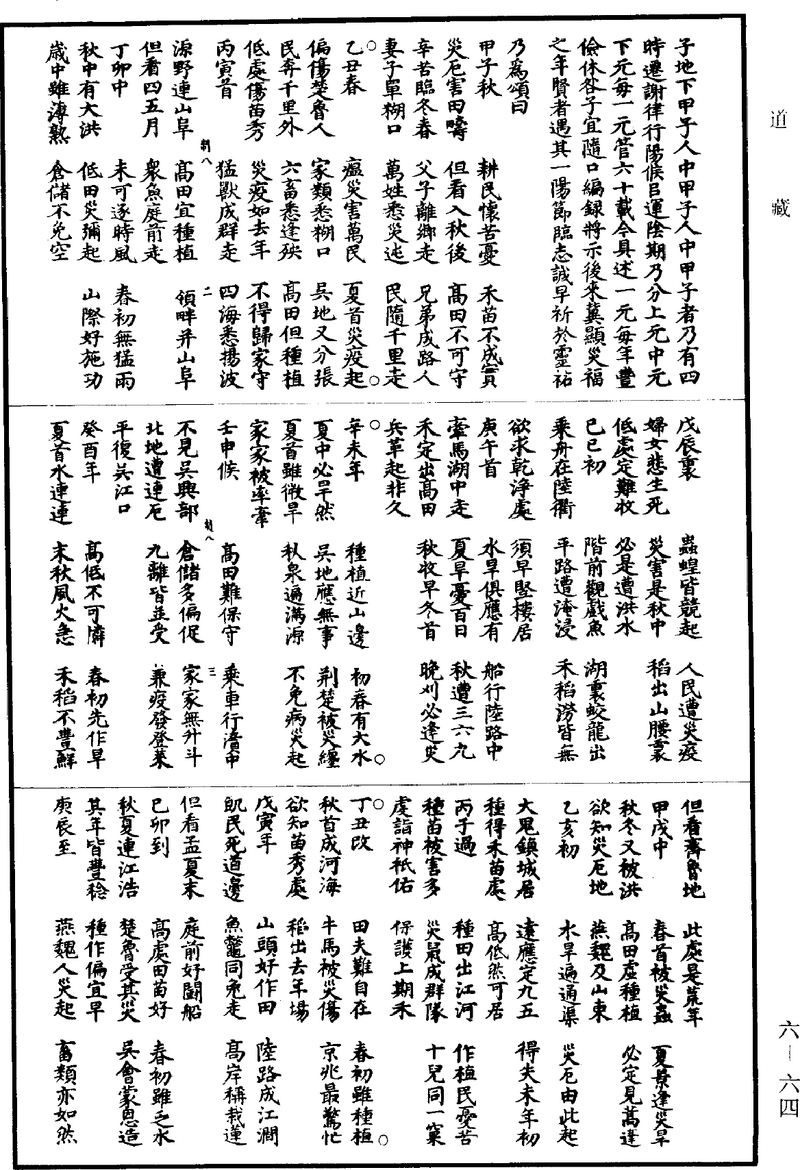 道藏
六—六四
子地下甲子人中甲子人中甲子者乃有四
時遷謝律行陽候呂運陰期乃分上元中元
下元每一元管六十載今具述一元每年豐
儉休咎子宜隨口編録將示後來冀顯災福
之年賢者遇其一陽節臨志誠早祈於靈祐
乃為頌曰
甲子秋 耕民懷苦憂 禾苗不成實
災厄害田疇 但看入秋後 高田不可守
辛苦臨冬春 父子離鄉走 兄弟成路人
妻子單糊口 萬姓悉災迍 民隨千里走
○乙丑春 瘟災害萬民 夏首災疫起○
偏傷楚魯人 家類悉糊口 吳地又分張
民奔千里外 六畜悉逢殃 高田但種植
低處傷苗秀 災疫如去年 不得歸家守
丙寅首 猛獸成群走 四海悉揚波
制八 二
源野連山阜 高田宜種植 領畔并山阜
但看四五月 衆魚庭前走
丁卯中 未可逐時風 春初無猛雨
秋中有大洪 低田災彌起 山際好施功
歲中雖薄熟 倉儲不免空
戊辰裏 蟲蝗皆競起 人民遭災疫
婦女悲生死 災害是秋中 稻出山腰裏
低處定難收 必是遭洪水
己巳初 階前觀戲魚 湖裏蛟龍出
乘舟在陸衢 平路遭淹浸 禾稻澇皆無
欲求乾淨處 須早堅樓居
庚午首 水旱俱應有 船行陸路中
牽馬湖中走 夏旱憂百日 秋遭三六九
禾定出高田 秋收早冬首 晚刈必逢災
兵革起非久
○辛未年 種植近山邊 初春有大水○
夏中必旱然 吳地應無事 荊楚被災纏
夏首雖微旱 秋泉遍滿源 不免病災起
家家被率牽
壬申候 高田難保守 乘車行澮中
制八 三
不見吳興部 倉儲多偏促 家家無升斗
北地遭連厄 九離皆並受 兼疫發登萊
平復吳江口
癸酉年 高低不可憐 春初先作旱
夏首水連連 末秋風火急 禾稻不豐鮮
但看齊魯地 此處是荒年
甲戌中 春首被災蟲 夏景逢災旱
秋冬又被洪 高田虛種植 必定見蒿蓬
欲知災厄地 燕魏及山東
乙亥初 水旱遍通渠 災厄由此起
大鬼鎮城居 遠應定九五 得失未年初
種得禾苗處 高低然可居
丙子過 種田出江河 作植民憂苦
種苗被害多 災鼠成群隊 十兒同一窠
虔詣神祇佑 保護上期禾
○丁丑改 田夫難自在 春初雖種植○
秋首成河海 牛馬被災傷 京兆最驚忙
欲知苗秀處 稻出去年場
戊寅年 山頭好作田 陸路成江澗
飢民死道邊 魚鼈同兔走 高岸稱栽蓮
但看孟夏末 庭前好鬭船
己卯到 高處田苗好 春初雖乏水
秋夏連江浩 楚魯受其災 吳會蒙恩造
其年皆豐稔 種作偏宜早
庚辰至 燕魏人災起 畜類亦如然